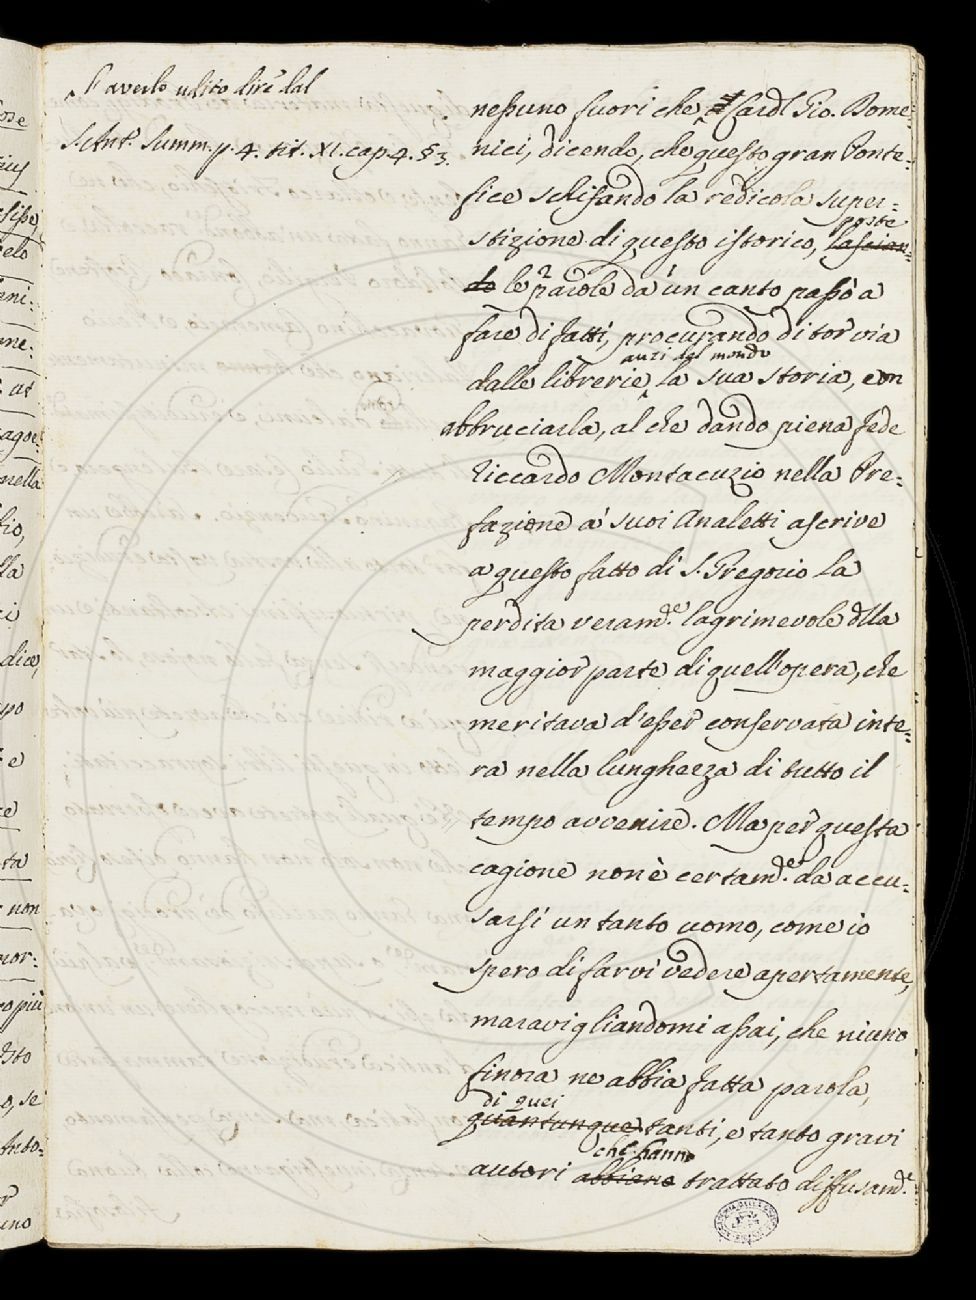 averlo udito dire dal
S. Ant.º Summ. p. 4. tit. XI. cap. 4. § 3.
nessuno fuori che Card.l Gio. Dome=
nici, dicendo, che questo gran Ponte=
fice schifando la redicola super=
stizione di questo istorico, lascian=
poste
do le parole da un canto passò a
fare di fatti, procurando di tor via
anzi dal mondo
dalle librerie la sua storia, con
abbruciarla, al che dando piena fede
Riccardo Montacuzio nella Pre=
fazione a' suoi Analetti ascrive
a questo fatto di S. Gregorio la
perdita veram.e lagrimevole dlla
maggior parte di quell'opera, che
meritava d'esser conservata inte=
ra nella lunghezza di tutto il
tempo avvenire. Ma per questa
cagione non è certam.e da accu=
sarsi un tanto uomo, come io
spero di farvi vedere apertamente,
maravigliandomi assai, che niuno
finora ne abbia fatta parola,
di quei
quantunque tanti, e tanto gravi
che hanno
autori abbiano trattato diffusam.e